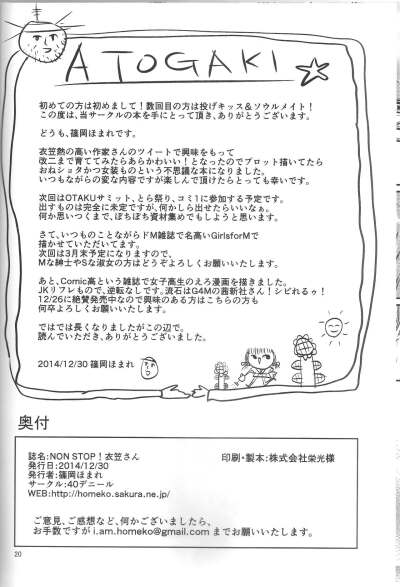 ATOGAKI
初めての方は初めまして！数回目の方は投げキッス＆ソウルメイト！
この度は、当サークルの本を手にとって頂き、ありがとうございます。
どうも、篠岡ほまれです。
衣笠熱の高い作家さんのツイートで興味をもって
改二まで育ててみたらあらかわいい！となったのでプロット描いてたら
おねショタかつ女装ものという不思議な本になりました。
いつもながらの変な内容ですが楽しんで頂けたらとっても幸いです。
次回はOTAKUサミット、とら祭り、コミ1に参加する予定です。
出すものは完全に未定ですが、何かしら出せたらいいなぁ。
何か思いつくまで、ぼちぼち資材集めでもしようと思います。
さて、いつものことながらドM雑誌で名高いGirlsforMで
描かせていただいてます。
次回は3月末予定になりますので、
Mな紳士やSな淑女の方はどうぞよろしくお願いします。
あと、Comic高という雑誌で女子高生のえろ漫画を描きました。
JKリフレもので、逆転なしです。流石はG4Mの茜新社さん！シビれるゥ！
12/26に絶賛発売中なので興味のある方はこちらの方も
何卒よろしくお願いします。
ではでは長くなりましたがこの辺で。
読んでいただき、ありがとうございました。
2014/12/30 篠岡ほまれ
奥付
誌名：NON STOP！衣笠さん
発行日：2014/12/30
発行者：篠岡ほまれ
サークル：40デニール
WEB：http://homeko.sakura.ne.jp/
印刷・製本：株式会社栄光様
ご意見、ご感想など、何かございましたら、
お手数ですが i.am.homeko@gmail.com までお願いいたします。
20